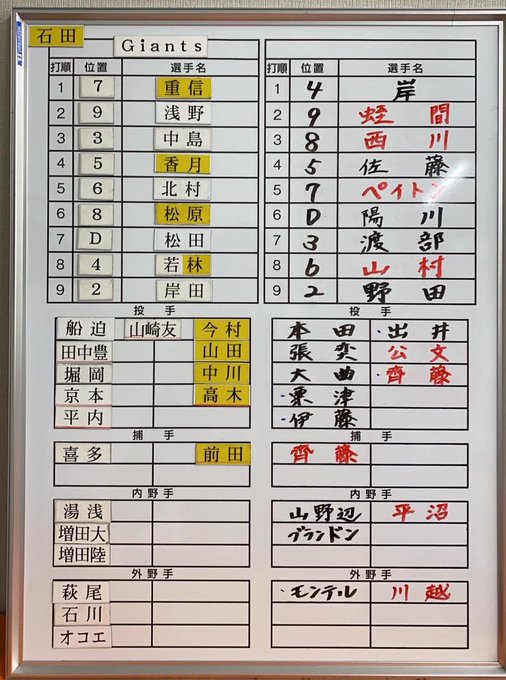 石田
Giants
打順 位置 選手名 打順 位置 選手名
1 7 重信 1 4 岸
2 9 浅野 2 9 蛭間
3 3 中島 3 8 西川
4 5 香月 4 5 佐藤
5 6 北村 5 7 ペイトン
6 8 松原 6 D 陽川
7 D 松田 7 3 渡部
8 4 若林 8 6 山村
9 2 岸田 9 2 野田
投手 投手
船迫 山崎友 今村 本田 ・出井
田中豊 山田 張奕 公文
堀岡 中川 大曲 ・齊藤
京本 高木 ・粟津
平内 ・伊藤
捕手 捕手
喜多 前田 齊藤
内野手 内野手
湯浅 山野辺 平沼
増田大 ブランドン
増田陸
外野手 外野手
萩尾 ・モンテル 川越
石川
オコエ